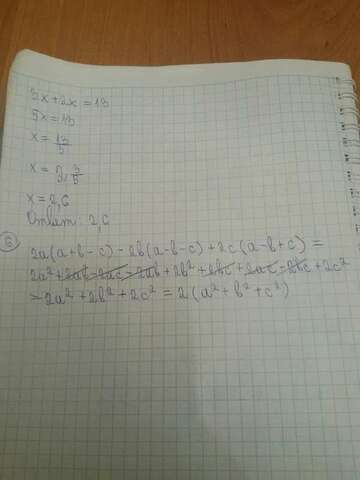 3x+2x=13
5x=13
x=13/5
x=2 3/5
x=2,6
Ответ: 2,6
2a(a+b-c)-2b(a-b-c)+2c(a-b+c)=
2a²+2ab-2ac-2ab+2b²+2bc+2ac-2bc+2c²
=2a²+2b²+2c²=2(a²+b²+c²)